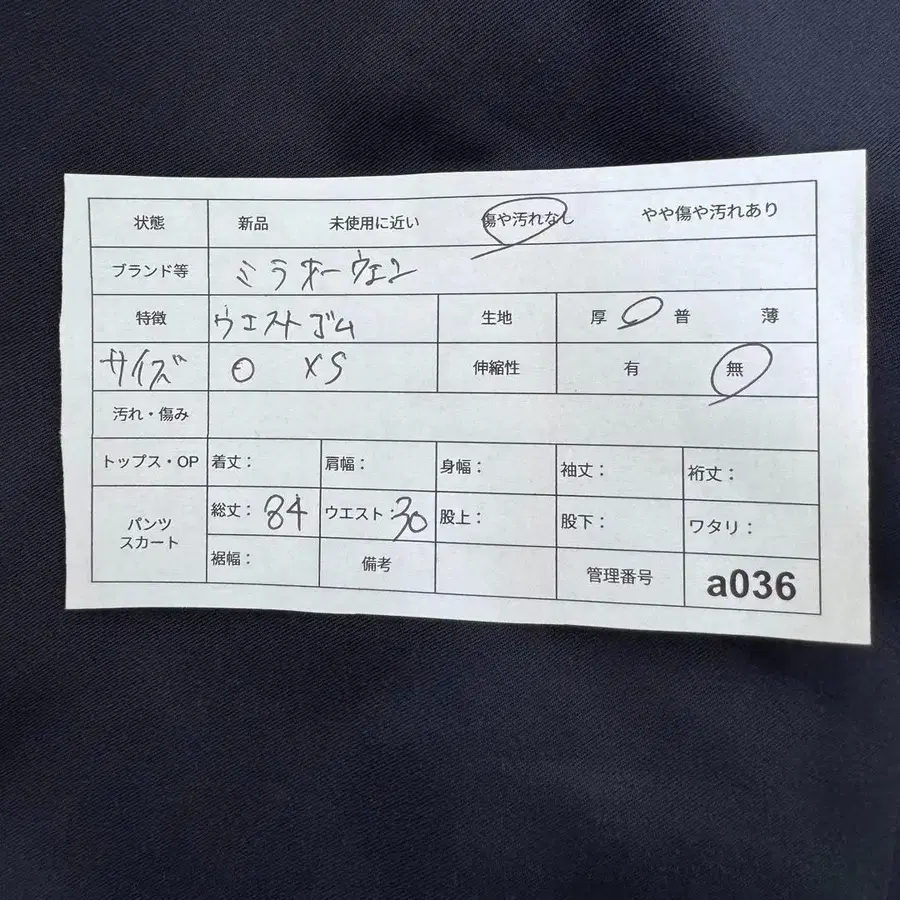 状態 新品 未使用に近い 傷や汚れなし やや傷や汚れあり
ブランド等 ミラオーウェン
特徴 ウエストゴム 生地 厚 普 薄
サイズ 0 XS 伸縮性 有 無
汚れ・傷み
トップス・OP 着丈: 肩幅: 身幅: 袖丈: 裄丈:
パンツ スカート 総丈: 84 ウエスト: 30 股上: 股下: ワタリ:
裾幅: 備考 管理番号 a036